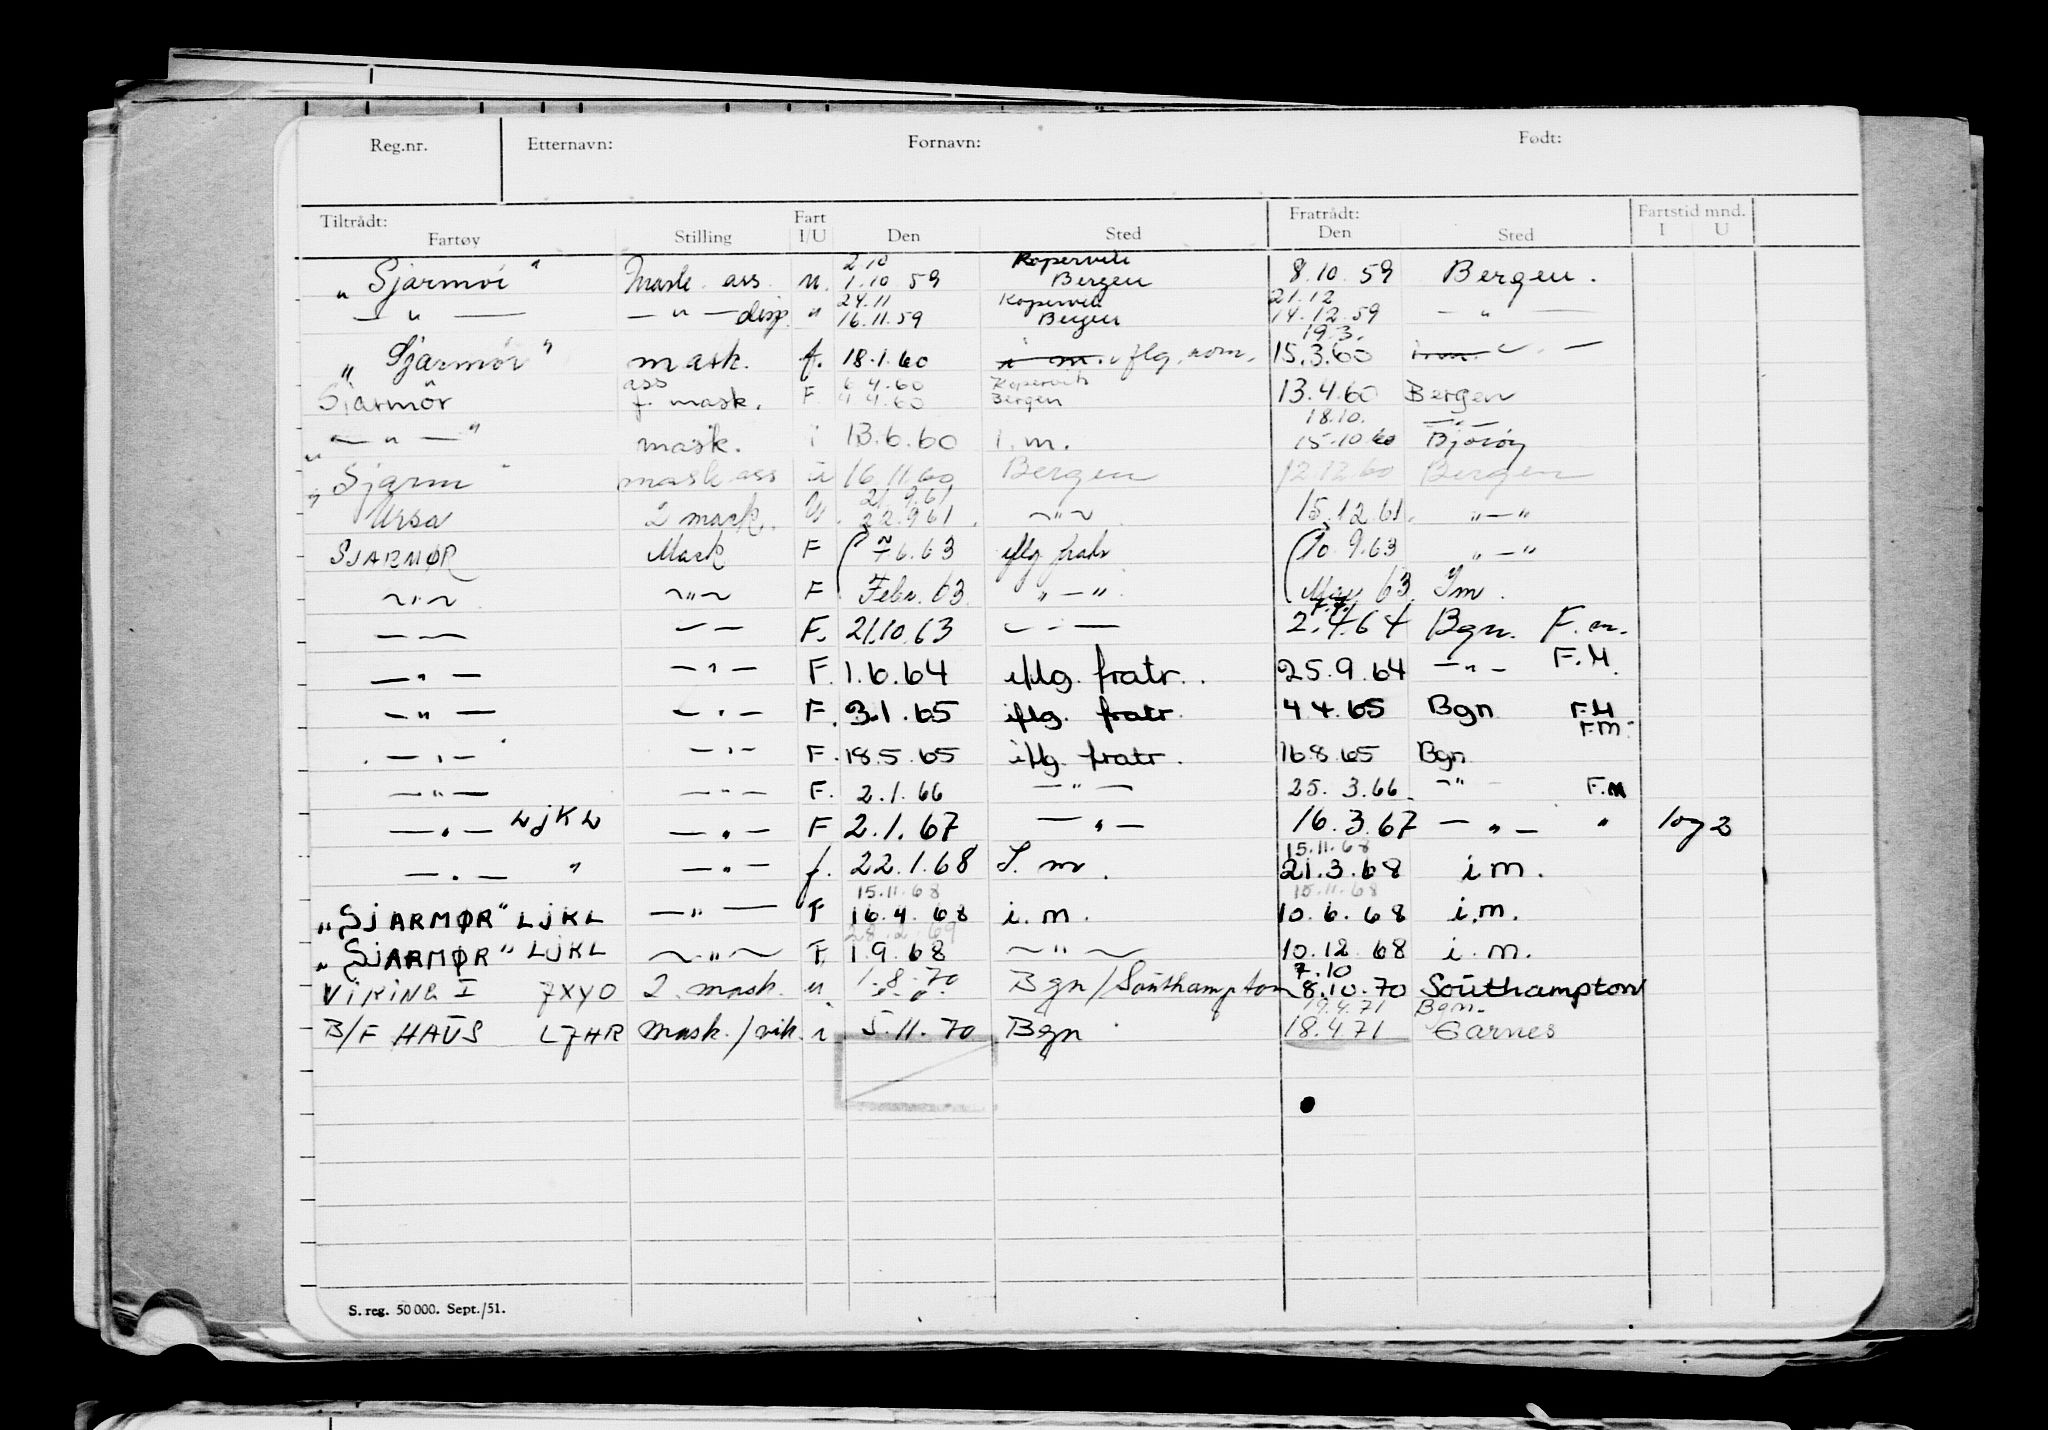 Reg.nr. Etternavn: Fornavn: Født:
Tiltrådt: Fart Fratrådt: Fartstid mnd.
Fartøy Stilling I/U Den Sted Den Sted I U
2.10 Kopervik
"Sjarmör" Mask. ass. u. 1.10 59 Bergen 8.10.59 Bergen.
24.11 Kopervik 21.12
— " — — " — disp. " 16.11.59 Bergen 14.12.59 — " —
19.3.
"Sjarmör" mask. f. 18.1.60 i m. iflg. 15.3.60
ass 6 4.60 Kopervik
Sjarmör f. mask. F 4 4.60 Bergen 13.4.60 Bergen
18.10. — " —
— " — " mask. i 13.6.60 i.m. 15.10 60 Bjoröy
"Sjarm " mask ass u 16 11 60 Bergen 12.12.60 Bergen
21 9.61
Ursa 2 mask. U. 22.9 61. ~"~ 15.12.61. "—"
SJARMØR Mask F 6.63 iflg fratr 10.9.63 "—"
~"~ ~"~ F Febr. 63. "—". May 63. Im.
— — — — F. 21.10.63 — " — 2.4.64 Bgn. F.m.
— " — — " — F. 1.6.64 iflg. fratr. 25.9.64 — " — F.M.
— " — — " — F. 3.1.65 iflg. fratr. 4 4.65 Bgn F.M
F.M.
— " — — " — F. 18.5.65 iflg. fratr. 16.8.65 Bgn
— " — — " — F. 2.1.66 — " — 25. 3.66. — " — F.M
— " — LJKL — " — F 2.1.67 — " — 16.3.67 — " — " 1og 2
15.11.68
— " — " — " — f. 22.1.68 I. m. 21.3.68 i m.
15.11.68 15.11.68
"SJARMØR" LJKL — " — F 16.4.68 i.m. 10.6.68 i.m.
28.2.69
"SJARMØR" LJKL ~"~ F. 1.9.68 ~"~ 10.12.68 i.m.
7.10
VIKING I 7XYO 2. mask. u 1.8.70 Bgn/Southampton 8.10.70 Southampton
19.4.71 Bgn.
B/F HAUS LJHR mask./vik. i 5.11.70 Bgn 18.4.71 Garnes
S. reg. 50 000. Sept./51.